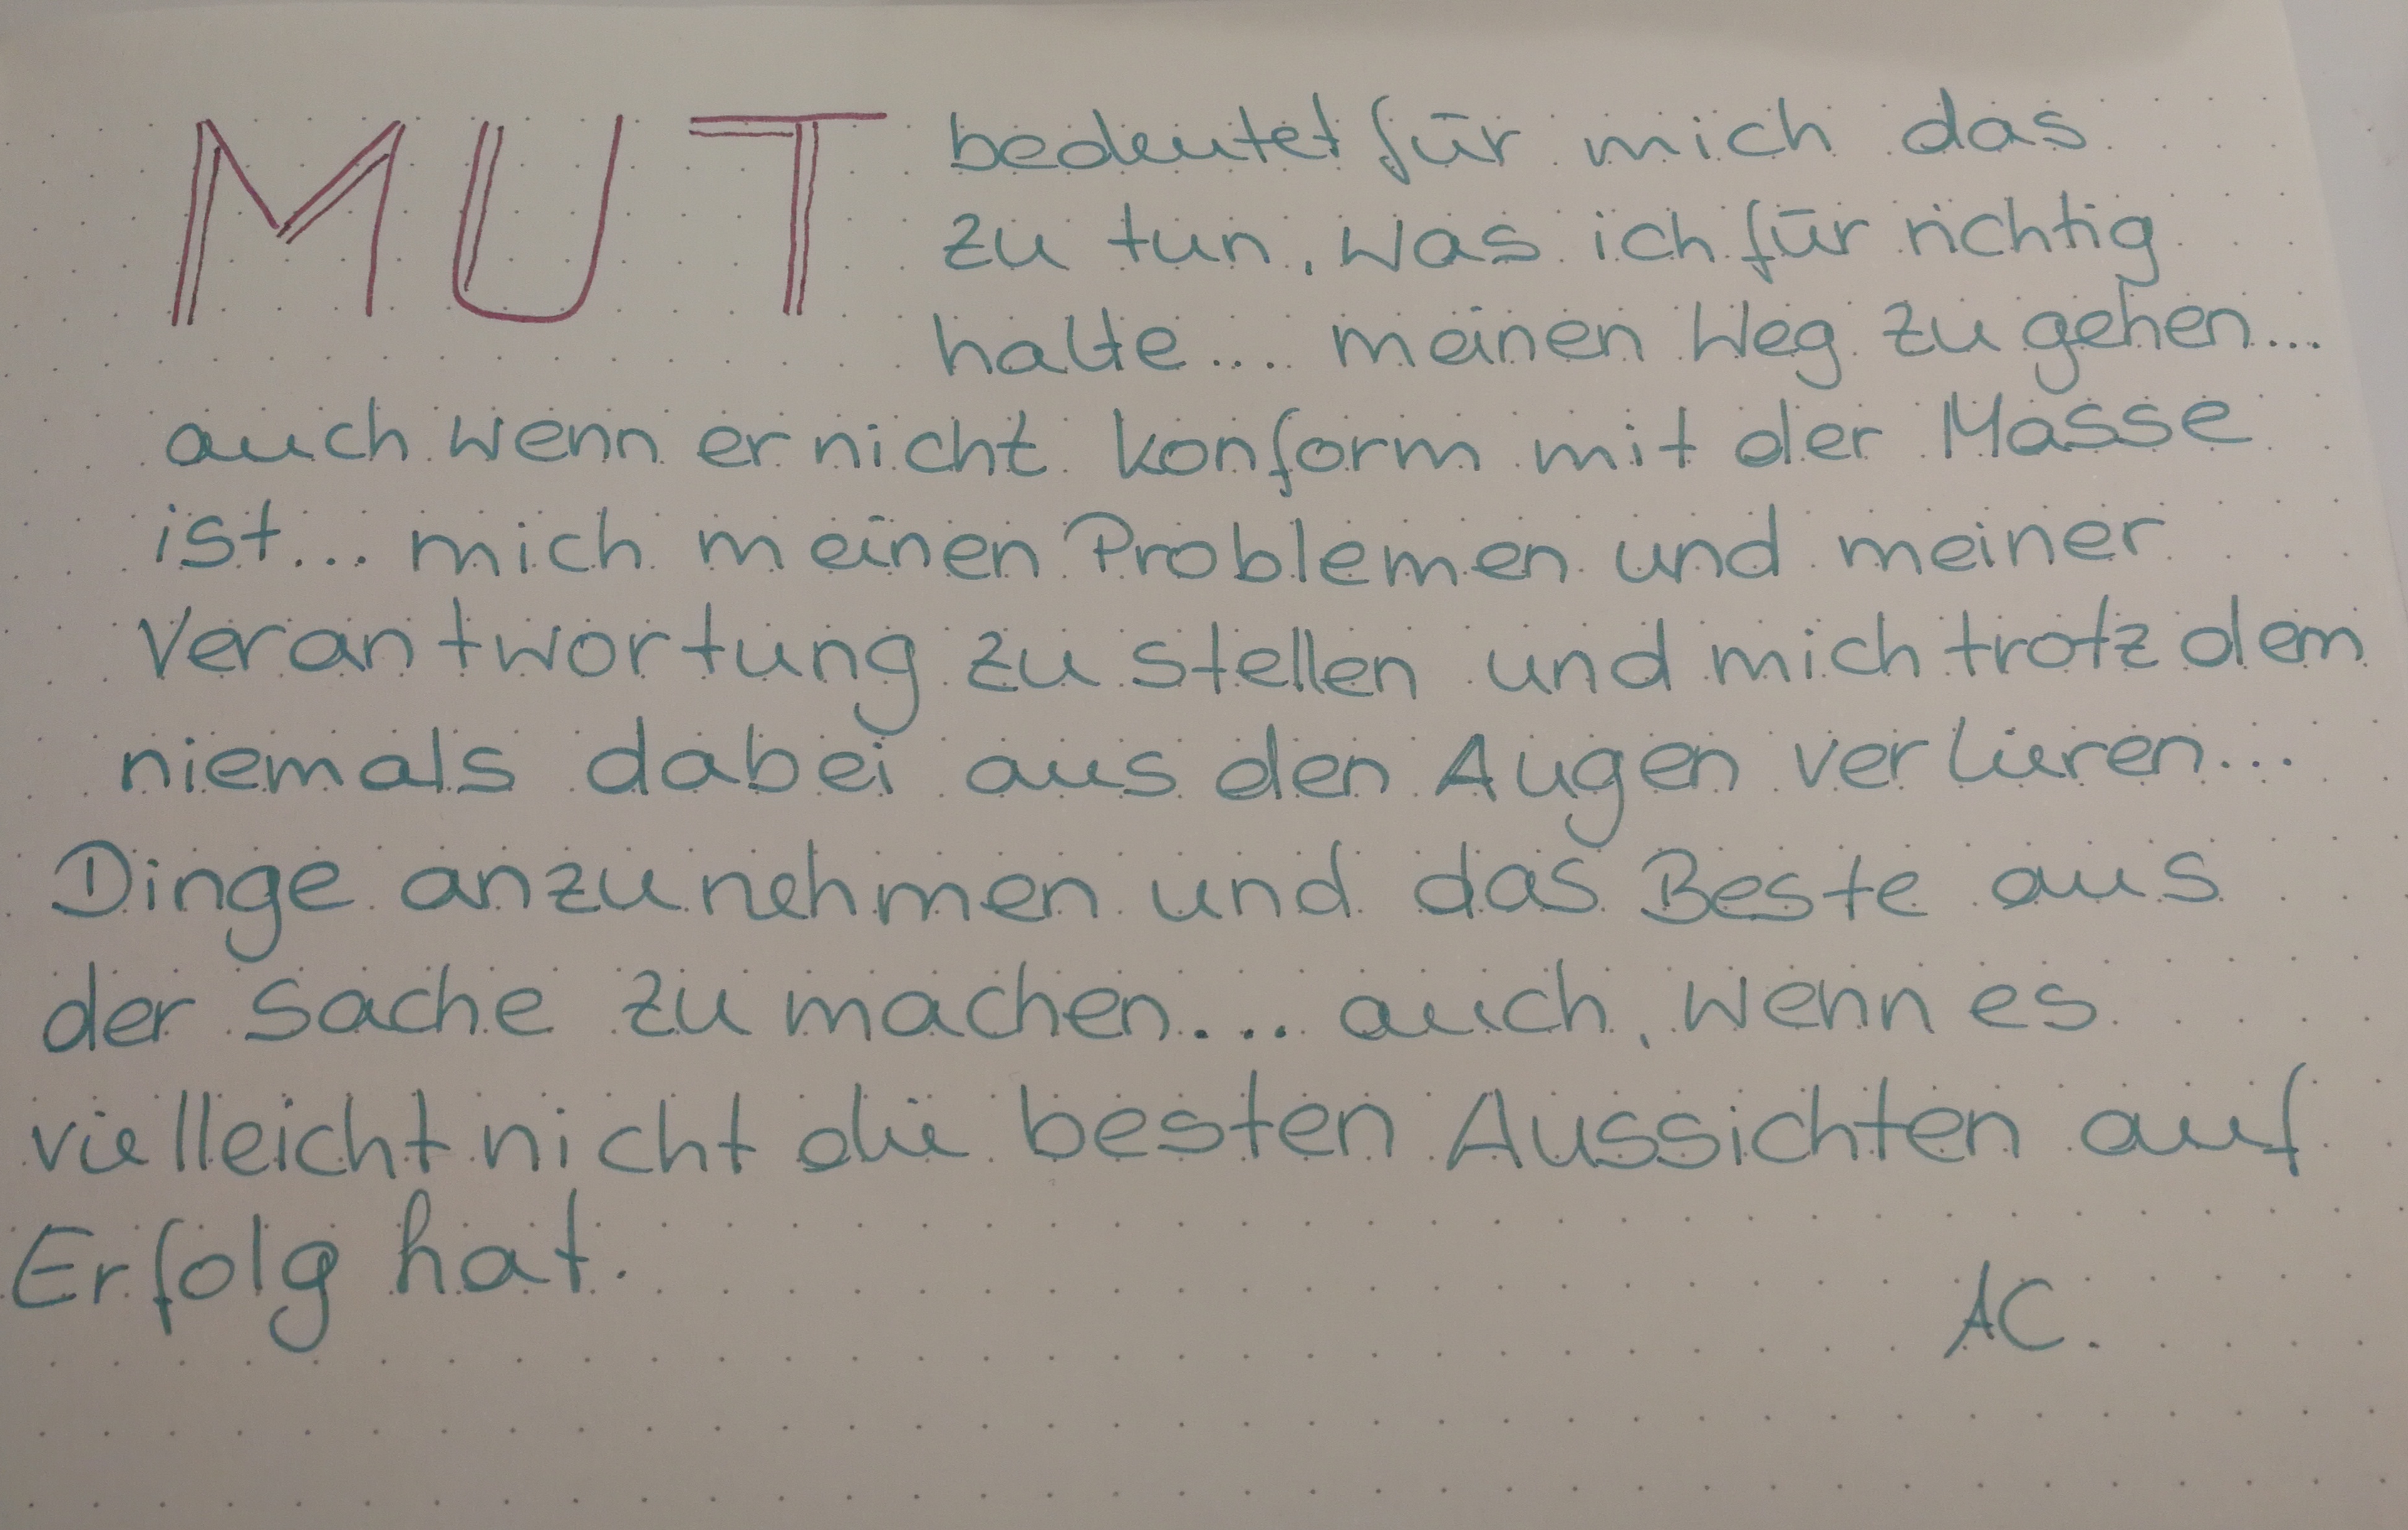 MUT bedeutet für mich das
zu tun, was ich für richtig
halte.... meinen Weg zu gehen...
auch wenn er nicht konform mit der Masse
ist... mich meinen Problemen und meiner
Verantwortung zu stellen und mich trotzdem
niemals dabei aus den Augen verlieren...
Dinge anzunehmen und das Beste aus
der Sache zu machen.... auch, wenn es
vielleicht nicht die besten Aussichten auf
Erfolg hat.
AC.